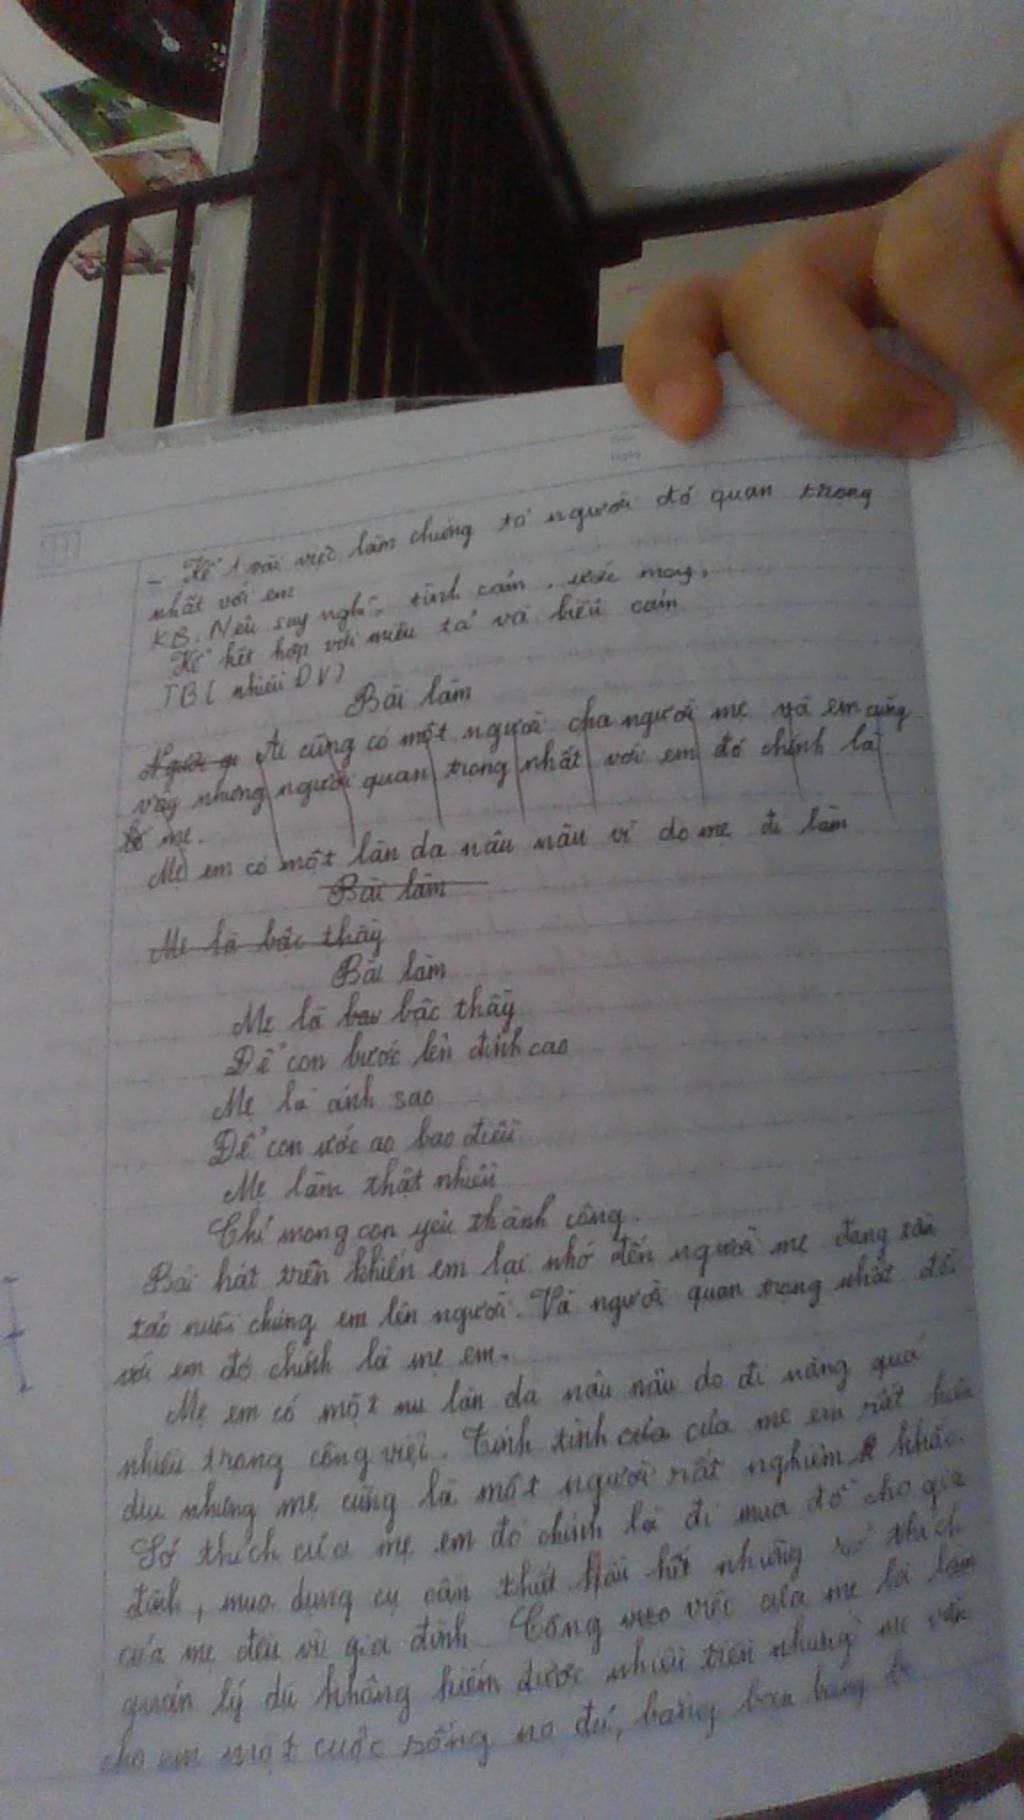 - Kể 1 vài việc làm chứng tỏ người đó quan trọng
nhất với em
KB. Nêu suy nghĩ, tình cảm, ước mong,
Kể kết hợp với miêu tả và biểu cảm
TB ( nhiều ĐV)
Bài làm
Ai cũng có một người cha người mẹ và em cũng
vậy nhưng người quan trọng nhất với em đó chính là
mẹ.
Mẹ em có một làn da nâu nâu vì do mẹ đi làm
Bài làm
Mẹ là bậc thầy
Bài làm
Mẹ là bậc thầy
Để con bước lên đỉnh cao
Mẹ là ánh sao
Để con ước ao bao điều
Mẹ làm thật nhiều
Chỉ mong con yêu thành công.
Bài hát trên khiến em lại nhớ đến người mẹ đang tần
tảo nuôi chúng em lên người. Và người quan trọng nhất đối
với em đó chính là mẹ em.
Mẹ em có một làn da nâu nâu do đi nắng quá
nhiều trong công việc. Tính tình của của mẹ em rất hiền
dịu nhưng mẹ cũng là một người rất nghiêm khắc.
Sở thích của mẹ em đó chính là đi mua đồ cho gia
đình, mua dụng cụ cần thiết hầu hết những sở thích
của mẹ đều vì gia đình. Công việc của mẹ là làm
quản lý dù không kiếm được nhiều tiền nhưng mẹ vẫn
cho em một cuộc sống no đủ, bằng bạn bằng bè